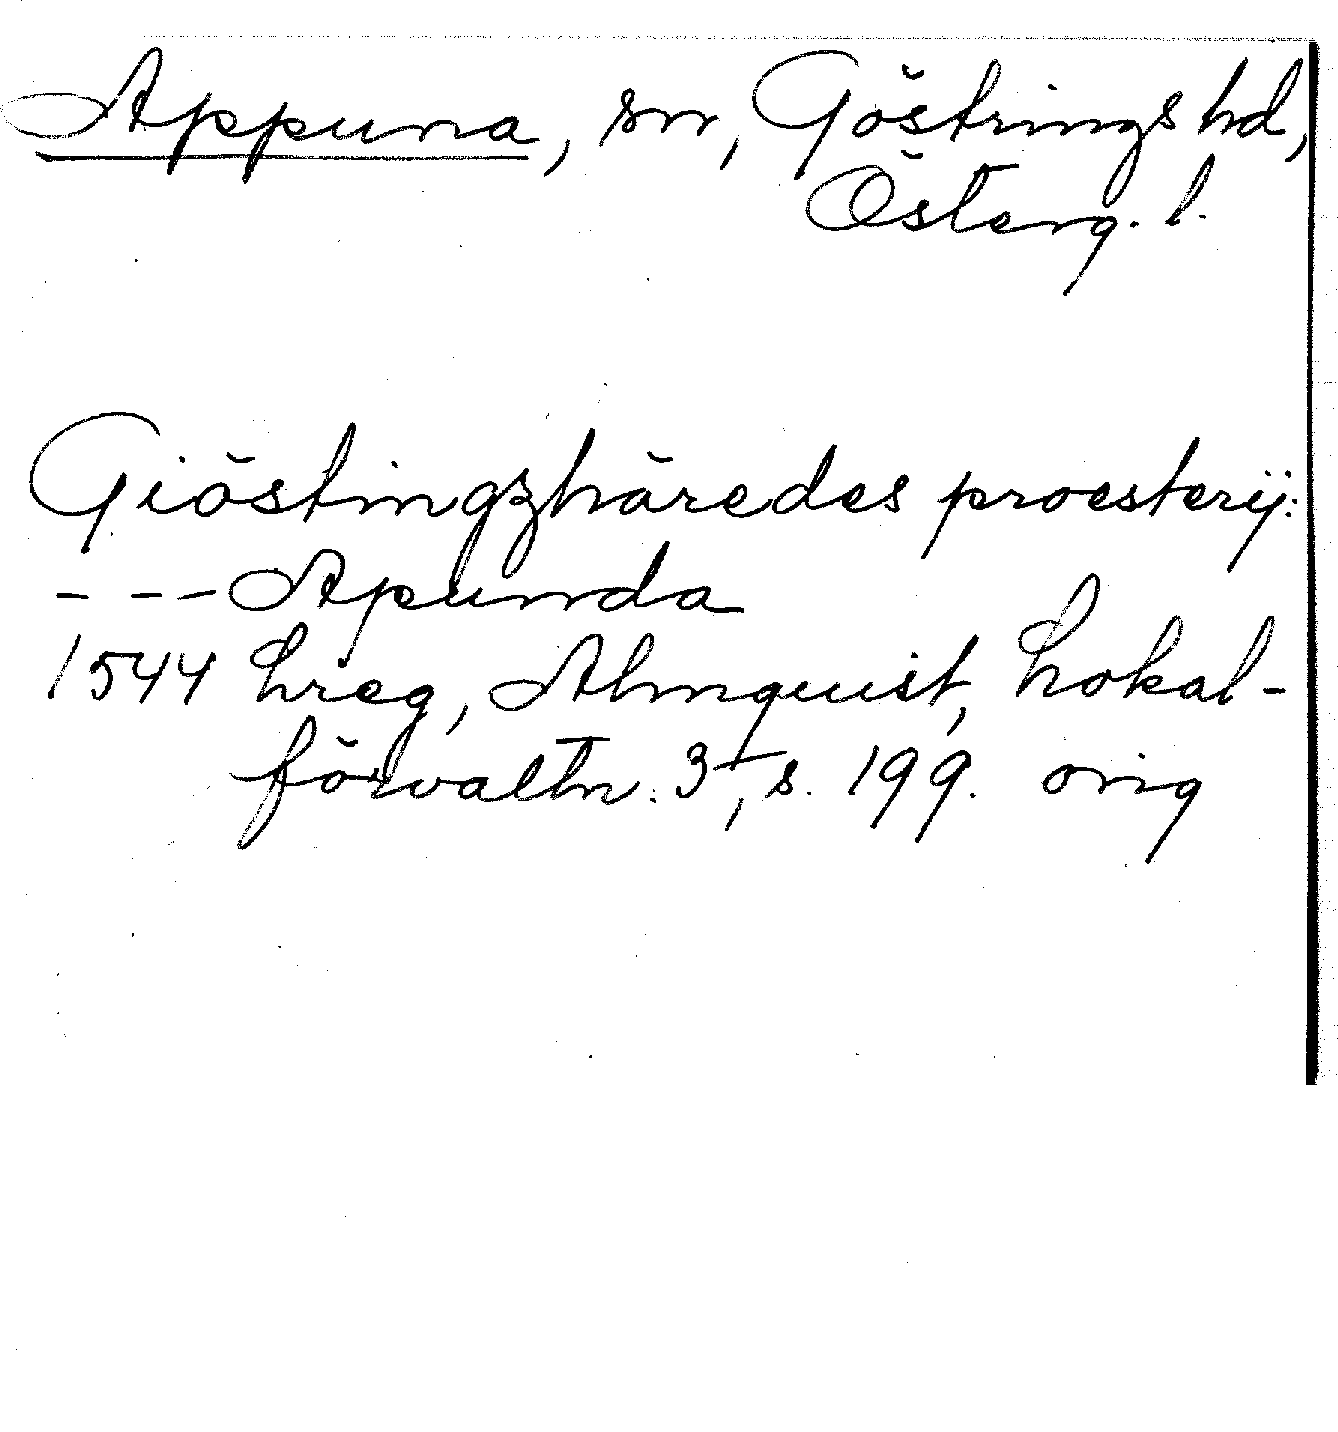 Appuna, sn, Göstrings hd,
Österg. l.
Giöstingzhäredes proesterij:
- - - Apunda
1544 hreg, Almquist, Lokal-
förvaltn. 3, s. 199. orig